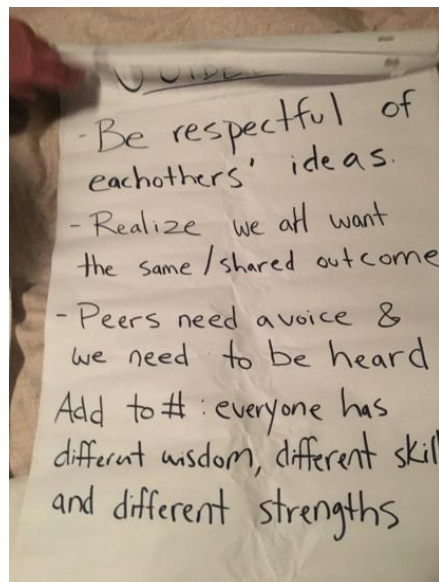 - Be respectful of
eachothers' ideas.
- Realize we all want
the same/shared outcome
- Peers need a voice &
we need to be heard
Add to #: everyone has
different wisdom, different skil
and different strengths